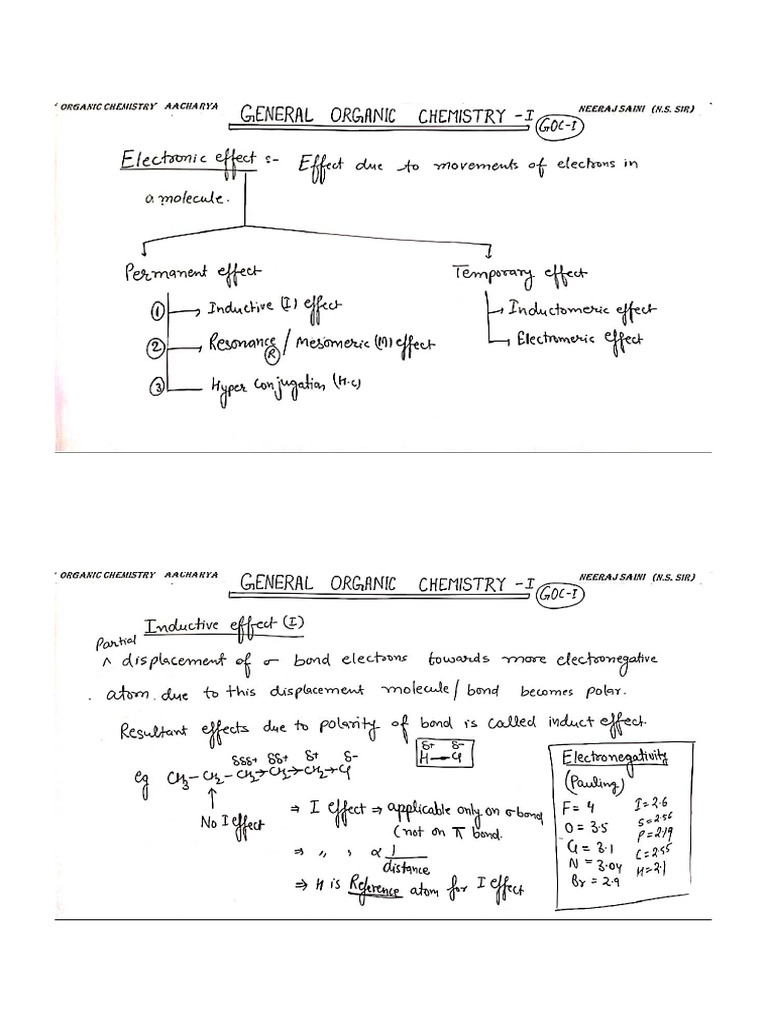 ORGANIC CHEMISTRY AACHARYA
GENERAL ORGANIC CHEMISTRY -I
NEERAJ SAINI (N.S. SIR)
GOC-I
Electronic effect :- Effect due to movements of electrons in
a molecule.
Permanent effect
Temporary effect
① Inductive (I) effect
Inductomeric effect
② Resonance / Mesomeric (M) effect
Ⓡ
Electromeric effect
③ Hyper conjugation (H.C)
ORGANIC CHEMISTRY AACHARYA
GENERAL ORGANIC CHEMISTRY -I
NEERAJ SAINI (N.S. SIR)
GOC-I
Inductive effect (I)
Partial
^ displacement of σ bond electrons towards more electronegative
atom. due to this displacement molecule/ bond becomes polar.
Resultant effects due to polarity of bond is called induct effect.
δ+ δ-
H—Cl
δδδ+ δδ+ δ+ δ-
eg CH3-CH2-CH2→CH2→CH2→Cl
No I effect
⇒ I effect ⇒ applicable only on σ bond
(not on π bond.
⇒ " , ∝ 1/distance
⇒ H is Reference atom for I effect
Electronegativity
(Pauling)
F = 4
O = 3.5
Cl = 3.1
N = 3.04
Br = 2.9
I = 2.6
S = 2.56
P = 2.19
C = 2.55
H = 2.1